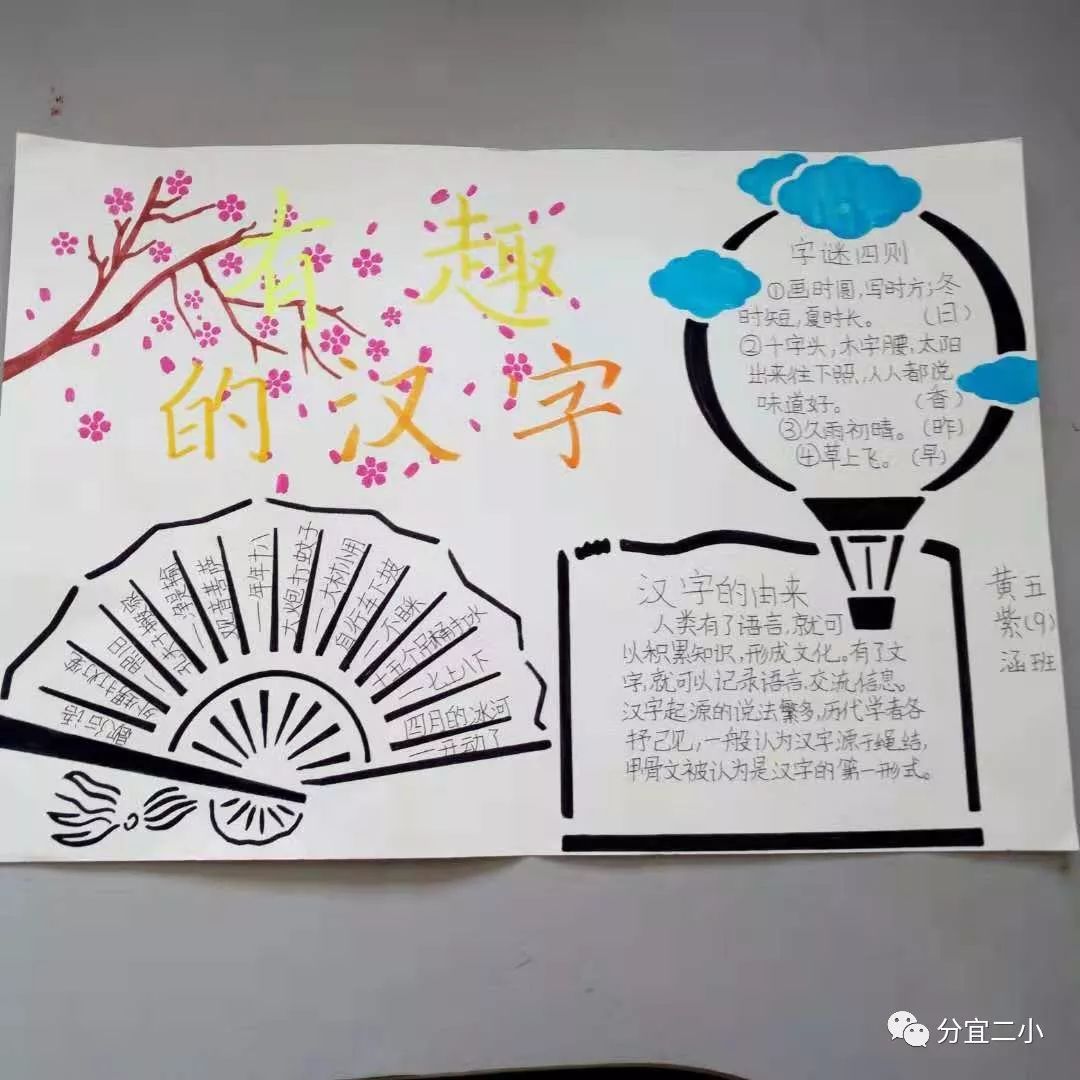 有趣
的汉字
字谜四则
①画时圆,写时方;冬
时短,夏时长。 (日)
②十字头,木字腰,太阳
出来往下照,人人都说
味道好。 (香)
③久雨初晴。(昨)
④草上飞。(早)
歇后语
外甥打灯笼
一照旧
孔夫子搬家
一净是输
观音菩萨
一年年十八
大炮打蚊子
一大材小用
自行车下坡
一不踩
十五个吊桶打水
一七上八下
四月的冰河
一开动了
汉字的由来
人类有了语言,就可
以积累知识,形成文化。有了文
字,就可以记录语言,交流信息。
汉字起源的说法繁多,历代学者各
抒己见,一般认为汉字源于绳结,
甲骨文被认为是汉字的第一形式。
五(9)班
黄紫涵
分宜二小